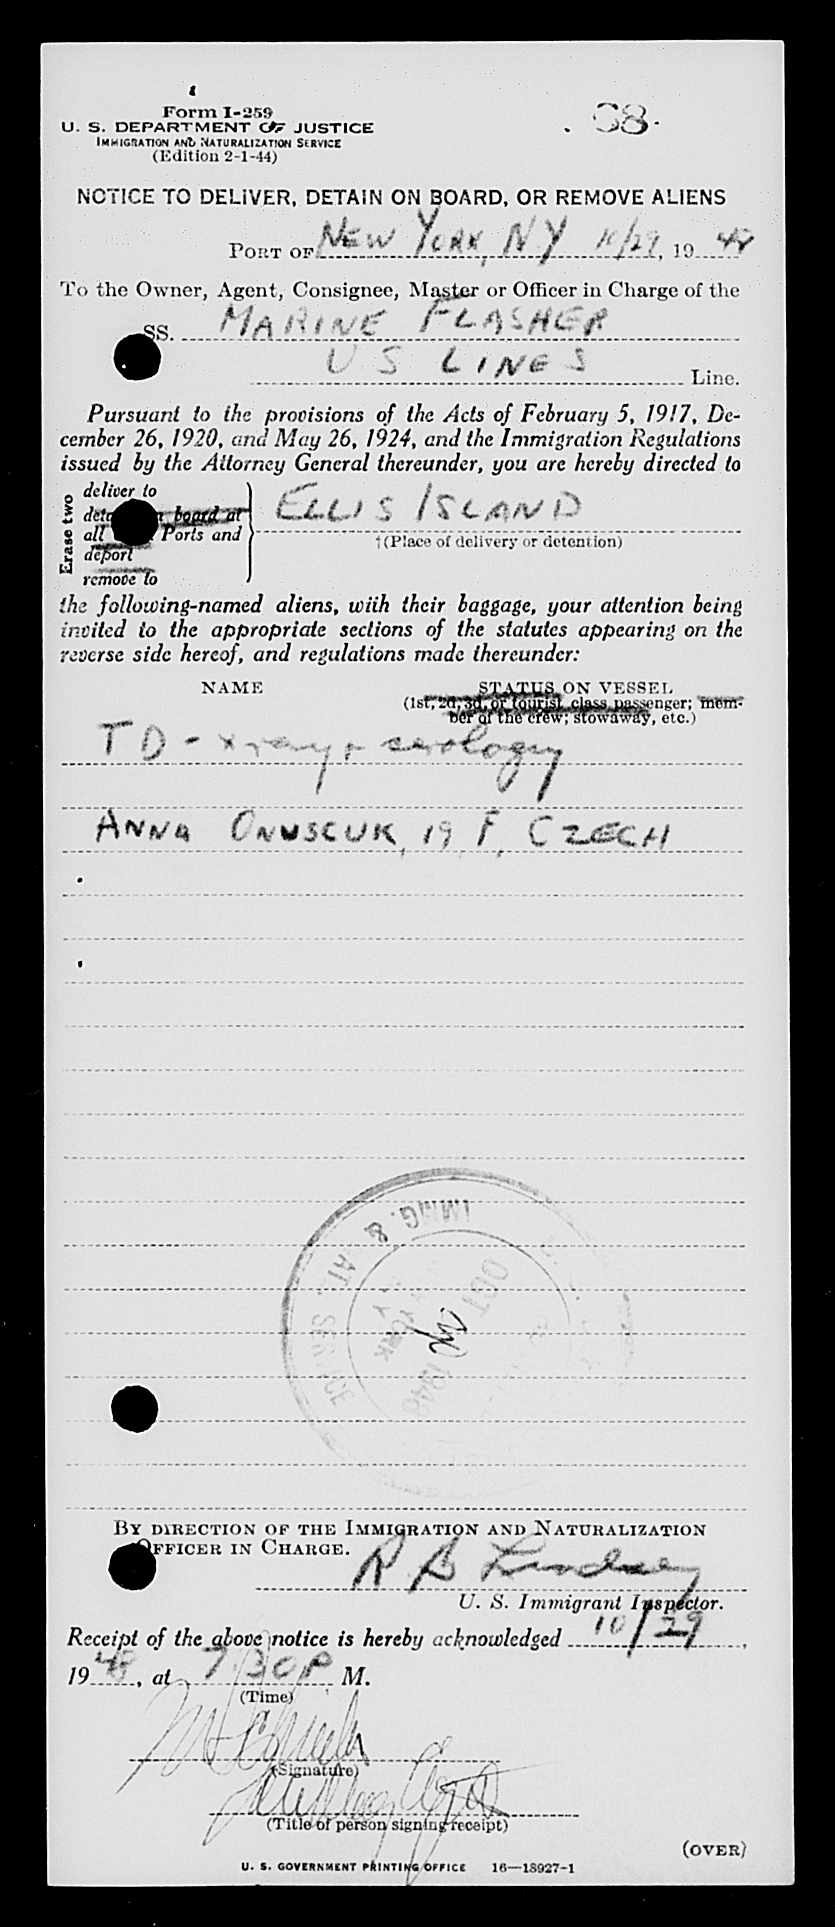 Form I-259
U. S. DEPARTMENT OF JUSTICE
IMMIGRATION AND NATURALIZATION SERVICE
(Edition 2-1-44)
68
NOTICE TO DELIVER, DETAIN ON BOARD, OR REMOVE ALIENS
PORT OF NEW YORK, N.Y 10/29, 1948
To the Owner, Agent, Consignee, Master or Officer in Charge of the
SS. MARINE FLASHER
U S LINES Line.
Pursuant to the provisions of the Acts of February 5, 1917, De-
cember 26, 1920, and May 26, 1924, and the Immigration Regulations
issued by the Attorney General thereunder, you are hereby directed to
Erase two
deliver to
board at
all Ports and
deport
remove to
ELLIS ISLAND
†(Place of delivery or detention)
the following-named aliens, with their baggage, your attention being
invited to the appropriate sections of the statutes appearing on the
reverse side hereof, and regulations made thereunder:
NAME STATUS ON VESSEL
(1st, 2d, 3d, or tourist class passenger; mem-
ber of the crew; stowaway, etc.)
TD - xray + serology
ANNA ONUSCUK, 19, F, CZECH
IMMIG. & NAT. SERVICE
OCT 1948
YORK
BY DIRECTION OF THE IMMIGRATION AND NATURALIZATION
OFFICER IN CHARGE.
R B Lindsey
U. S. Immigrant Inspector.
Receipt of the above notice is hereby acknowledged 10/29,
1948, at 7:30 P M.
(Time)
(Signature)
(Title of person signing receipt)
(OVER)
U. S. GOVERNMENT PRINTING OFFICE 16—18927-1